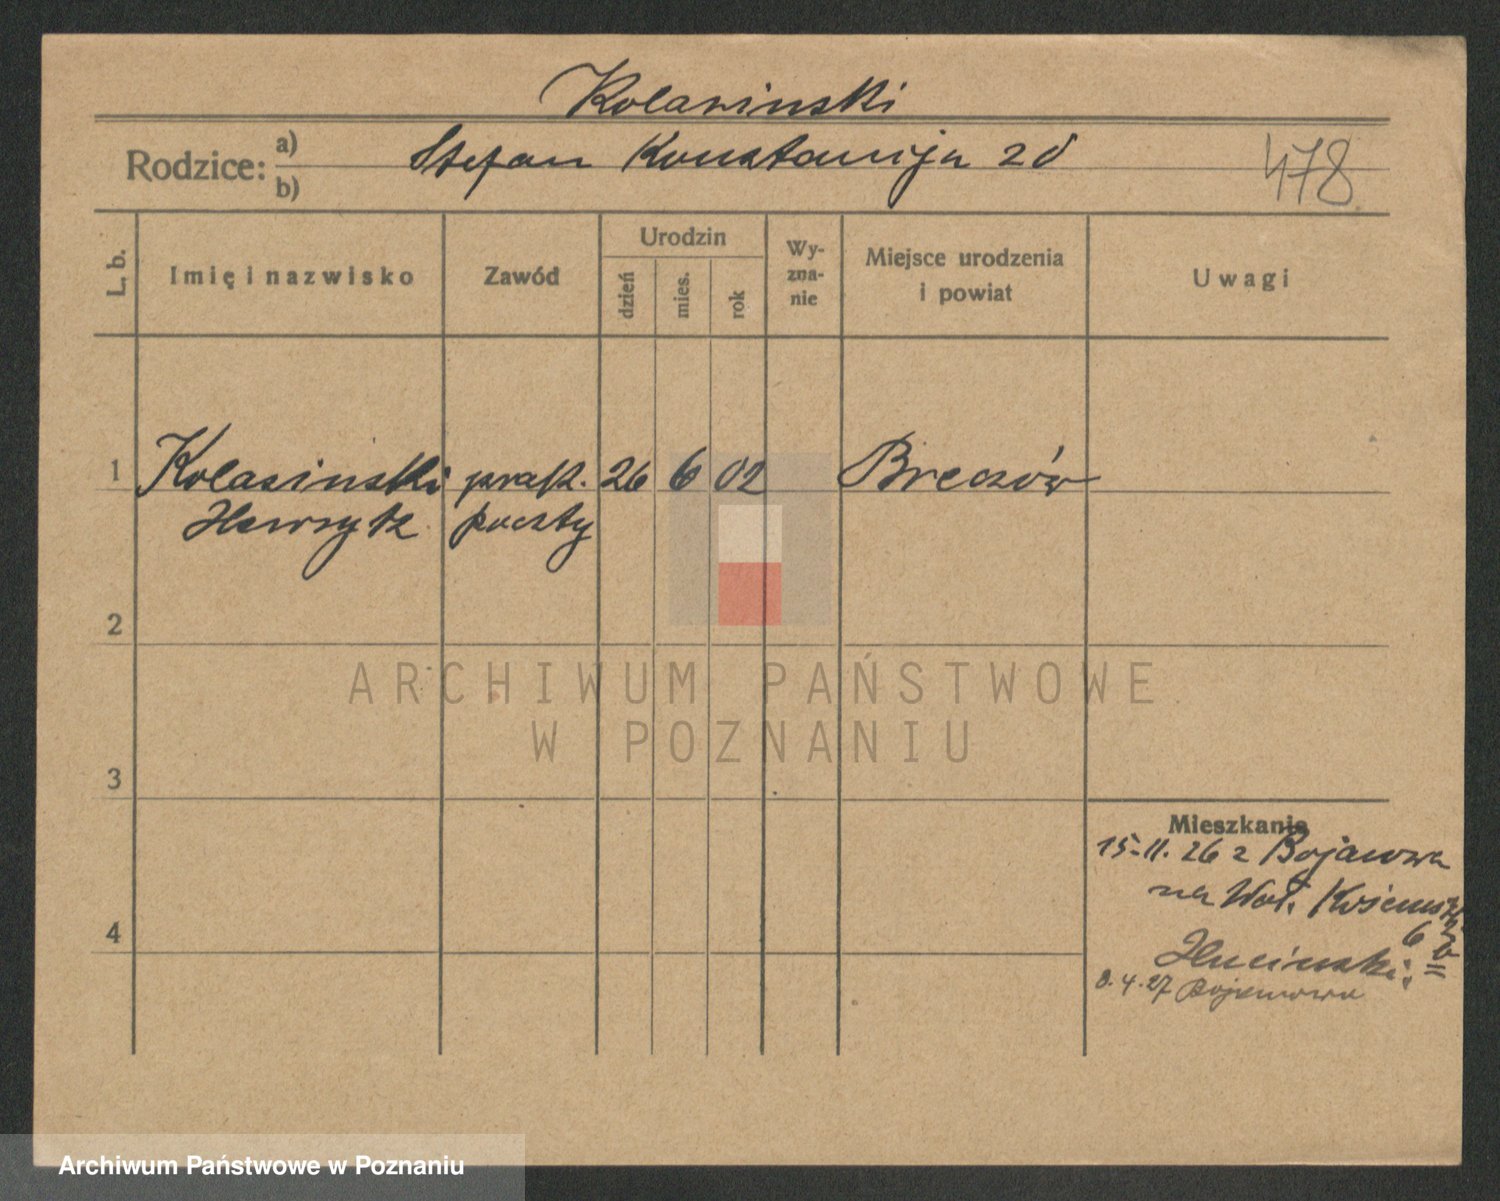 Kolasinski
Rodzice: a) Stefan Konstancja zd
b)
478
L. b.
Imię i nazwisko
Zawód
Urodzin
dzień
mies.
rok
Wy-
zna-
nie
Miejsce urodzenia
i powiat
Uwagi
1 Kolasinski prakt. 26 6 02 Breczów
Henryk poczty
2
ARCHIWUM PAŃSTWOWE
W POZNANIU
3
Mieszkania
15-11.26 z Bojanowa
na Woł.
6
4
8.4.27 Bojanowo
Archiwum Państwowe w Poznaniu